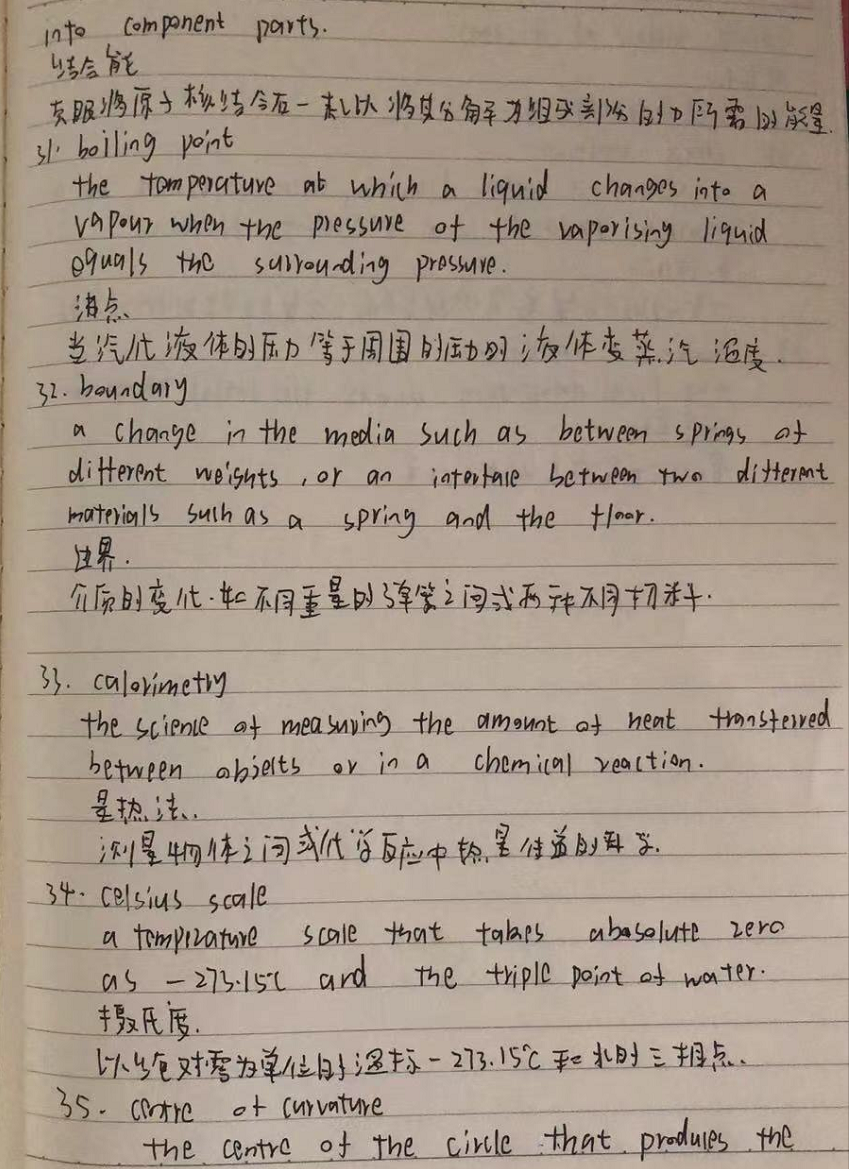 into component parts.
结合能
克服将原子核结合在一起以将其分解为组成部分的力所需的能量.
31. boiling point
the temperature at which a liquid changes into a
vapour when the pressure of the vaporising liquid
equals the surrounding pressure.
沸点.
当汽化液体的压力等于周围的压力时液体变蒸汽温度.
32. boundary
a change in the media such as between springs of
different weights, or an interface between two different
materials such as a spring and the floor.
边界.
介质的变化.如不同重量的弹簧之间或两种不同材料.
33. calorimetry
the science of measuring the amount of heat transferred
between objects or in a chemical reaction.
量热法.
测量物体之间或化学反应中热量传递的科学.
34. celsius scale
a tempirature scale that takes abasolute zero
as -273.15℃ and the triple point of water.
摄氏度.
以绝对零为单位的温标-273.15℃和水的三相点.
35. centre of curvature
the centre of the circle that produces the